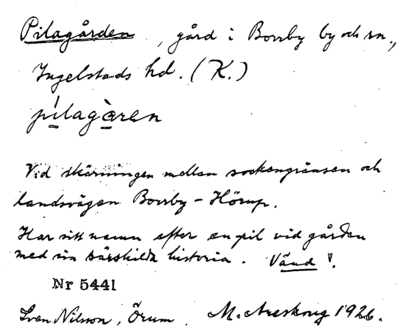 Pilagården, gård i Borrby by och sn.,
Ingelstads hd. (K.)
pìlagàren
Vid skärningen mellan sockengränsen och
landsvägen Borrby - Hörup.
Har sitt namn efter en pil vid gården
med sin särskilda historia. Vänd!
Nr 5441
Sven Nilsson, Örum. M. Areskoug 1926.